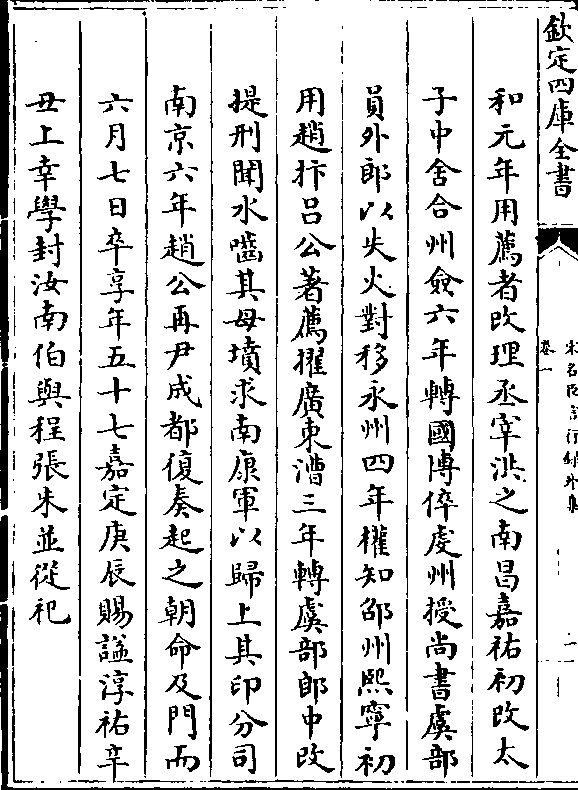 欽定四庫全書
卷一
和元年用薦者改理丞宰洪之南昌嘉祐初改太
子中舍合州僉六年轉國博倅虔州授尚書虞部
員外郎以失火對移永州四年權知邵州熙寧初
用趙抃吕公著薦擢廣東漕三年轉虞部郎中改
提刑聞水嚙其母墳求南康軍以歸上其印分司
南京六年趙公再尹成都復奏起之朝命及門而
六月七日卒享年五十七嘉定庚辰賜諡淳祐辛
丑上幸學封汝南伯與程張朱並從祀